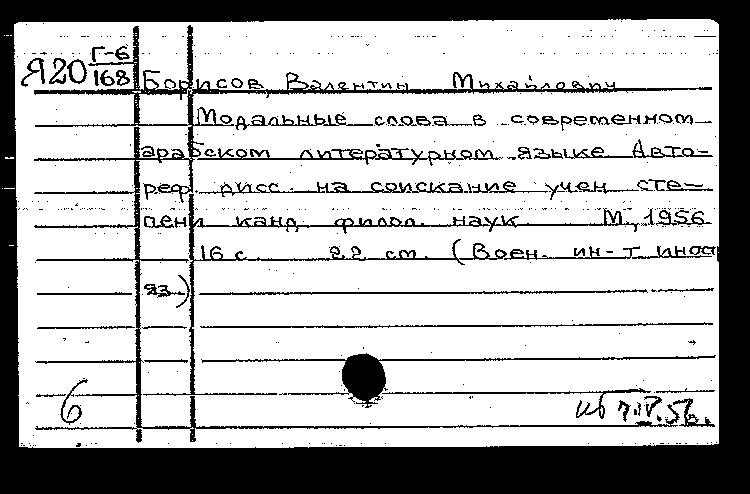 Я20 Г-6
168
Борисов, Валентин Михайлович
Модальные слова в современном
арабском литературном языке Авто-
реф. дисс. на соискание учен сте-
пени канд. филол. наук М., 1956
16 с. 22 см. (Воен. ин-т иностр
яз.)
6